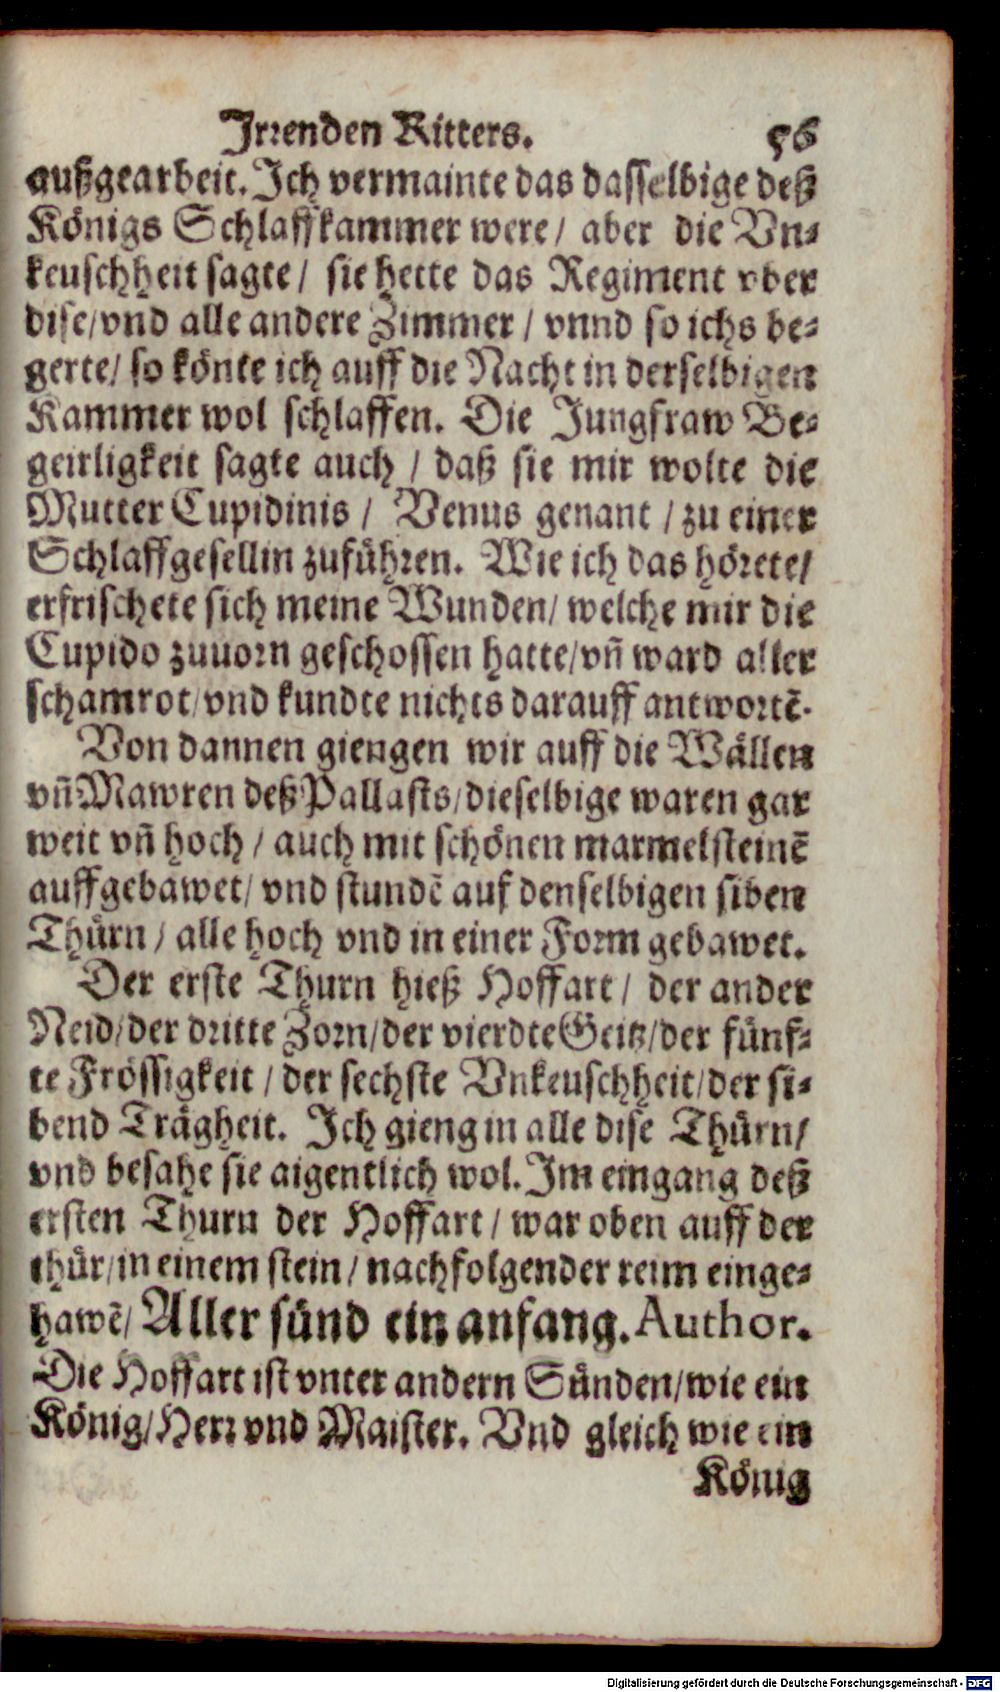 Irrenden Ritters. 56
außgearbeit. Ich vermainte das dasselbige deß
Königs Schlaffkammer were/ aber die Vn-
keuschheit sagte/ sie hette das Regiment vber
dise/vnd alle andere Zimmer/ vnnd so ichs be-
gerte/ so könte ich auff die Nacht in derselbigen
Kammer wol schlaffen. Die Jungfraw Be-
geirligkeit sagte auch/ daß sie mir wolte die
Mutter Cupidinis/ Venus genant/ zu einer
Schlaffgesellin zuführen. Wie ich das hörete/
erfrischete sich meine Wunden/ welche mir die
Cupido zuuorn geschossen hatte/vñ ward aller
schamrot/vnd kundte nichts darauff antwortẽ.
Von dannen giengen wir auff die Wällen
vñ Mawren deß Pallasts/dieselbige waren gar
weit vñ hoch/ auch mit schönen marmelsteinẽ
auffgebawet/ vnd stundẽ auf denselbigen siben
Thürn/ alle hoch vnd in einer Form gebawet.
Der erste Thurn hieß Hoffart/ der ander
Neid/der dritte Zorn/der vierdte Geitz/der fünf-
te Frössigkeit/ der sechste Vnkeuschheit/der si-
bend Trägheit. Ich gieng in alle dise Thürn/
vnd besahe sie aigentlich wol. Im eingang deß
ersten Thurn der Hoffart/ war oben auff der
thür/in einem stein/ nachfolgender reim einge-
hawẽ/ Aller sünd ein anfang. Author.
Die Hoffart ist vnter andern Sünden/wie ein
König/Herr vnd Maister. Vnd gleich wie ein
König
Digitalisierung gefördert durch die Deutsche Forschungsgemeinschaft - DFG